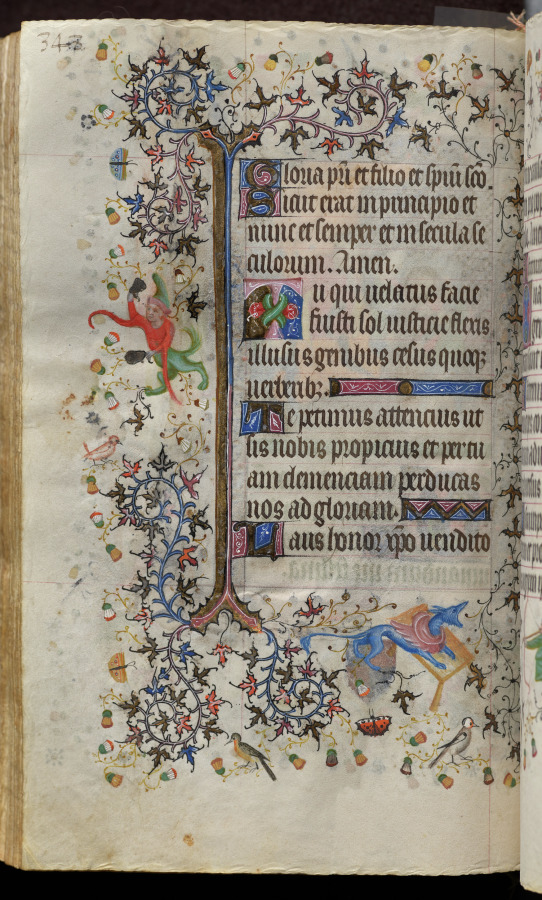 343
Gloria pri et filio et spiui sco.
Sicut erat in principio et
nunc et semper et in secula se
culorum. Amen.
Tu qui uelatus facie
fuisti sol iusticie flexis
illusus genibus cesus quoq;
uerberib;.
Te petimus attencius ut
sis nobis propicius et per tu
am clemenciam perducas
nos ad gloriam.
Laus honor xpo uendito